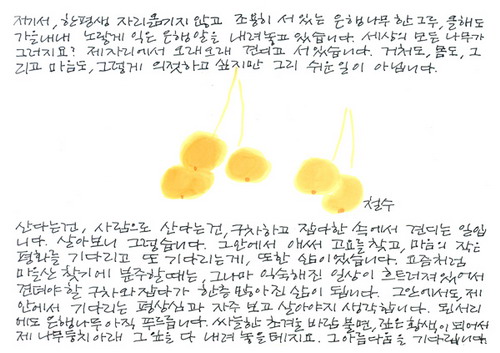 저기서, 한평생 자리옮기지 않고 조용히 서 있는 은행나무 한 그루, 올해도
가을내내 노랗게 익은 은행알을 내려놓고 있습니다. 세상의 모든 나무가
그러지요? 제자리에서 오래오래 견디고 서있습니다. 거처도, 몸도, 그
리고 마음도, 그렇게 의젓하고 싶지만 그리 쉬운일이 아닙니다.
철수
산다는건, 사람으로 산다는건, 구차하고 잡다한 속에서 견디는 일입
니다. 살아보니 그렇습니다. 그안에서 애써 고요를 찾고, 마음의 작은
평화를 기다리고 또 기다리는게, 또한 삶이었습니다. 요즘처럼
마을산 찾기에 분주할때는, 그나마 익숙해진 일상이 흐트러져있어서
견뎌야할 구차와 잡다가 한층 많아진 삶이 됩니다. 그안에서도, 제
안에서 기다리는 평상심과 자주 보고 살아야지 생각합니다. 된서리
에도 은행나무 아직 푸릅니다. 싸늘한 초겨울 바람 불면, 짙은 황색이 되어서
제 나무둥치아래 그 잎을 다 내려 놓을테지요. 그 아름다움을 기다립니다.